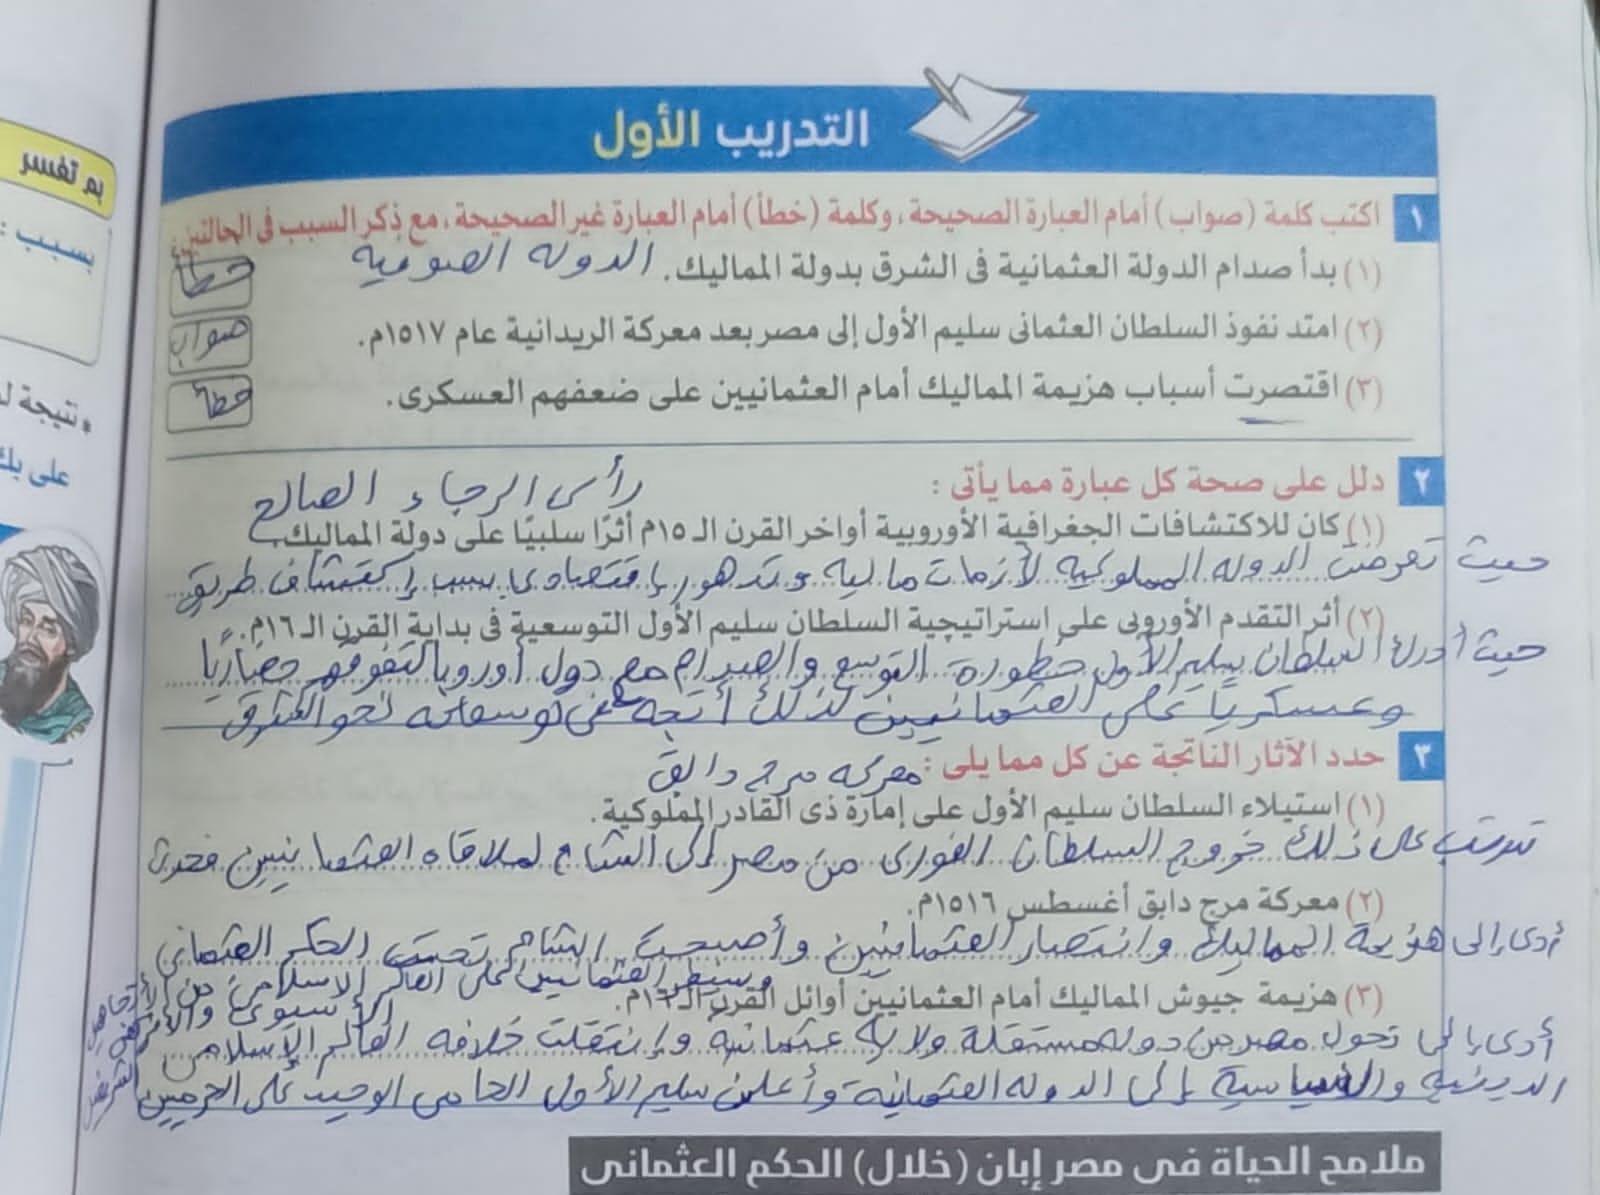 بم تفسر
بسبب :
* نتيجة
على بك
التدريب الأول
١ اكتب كلمة (صواب) أمام العبارة الصحيحة، وكلمة (خطأ) أمام العبارة غير الصحيحة، مع ذكر السبب فى الحالتين:
(١) بدأ صدام الدولة العثمانية فى الشرق بدولة المماليك. الدوله الصفوية خطأ
(٢) امتد نفوذ السلطان العثمانى سليم الأول إلى مصر بعد معركة الريدانية عام ١٥١٧م. صواب
(٣) اقتصرت أسباب هزيمة المماليك أمام العثمانيين على ضعفهم العسكرى. خطأ
٢ دلل على صحة كل عبارة مما يأتى :
(١) كان للاكتشافات الجغرافية الأوروبية أواخر القرن الـ ١٥م أثرًا سلبيًا على دولة المماليك.
حيث تعرضت الدوله المملوكيه لأزمات ماليه وتدهور إقتصادى بسبب إكتشاف طريق
رأس الرجاء الصالح
(٢) أثر التقدم الأوروبى على استراتيجية السلطان سليم الأول التوسعية فى بداية القرن الـ ١٦م.
حيث أدرك السلطان سليم الأول خطورة التوسع والصدام مع دول أوروبا لتفوقهم حضاريًا
وعسكريًا على العثمانيين لذلك أتجه فى توسعاته نحو الشرق
٣ حدد الآثار الناتجة عن كل مما يلى :
(١) استيلاء السلطان سليم الأول على إمارة ذى القادر المملوكية.
ترتب على ذلك خروج السلطان الغورى من مصر إلى الشام لملاقاه العثمانيين فحدث
معركه مرج دابق
(٢) معركة مرج دابق أغسطس ١٥١٦م.
أدى إلى هزيمة المماليك وانتصار العثمانيين وأصبحت الشام تحت الحكم العثمانى
(٣) هزيمة جيوش المماليك أمام العثمانيين أوائل القرن الـ ١٦م.
أدى إلى تحول مصر من دوله مستقلة ولايه عثمانية وإنتقلت خلافه العالم الإسلامى
الدينية والسياسية إلى الدوله العثمانية وأعلن سليم الأول الحامى الوحيد على الحرمين
الشريفين
وسيطر العثمانيين على العالم الاسلامى من
الأسيوى
ملامح الحياة فى مصر إبان (خلال) الحكم العثمانى